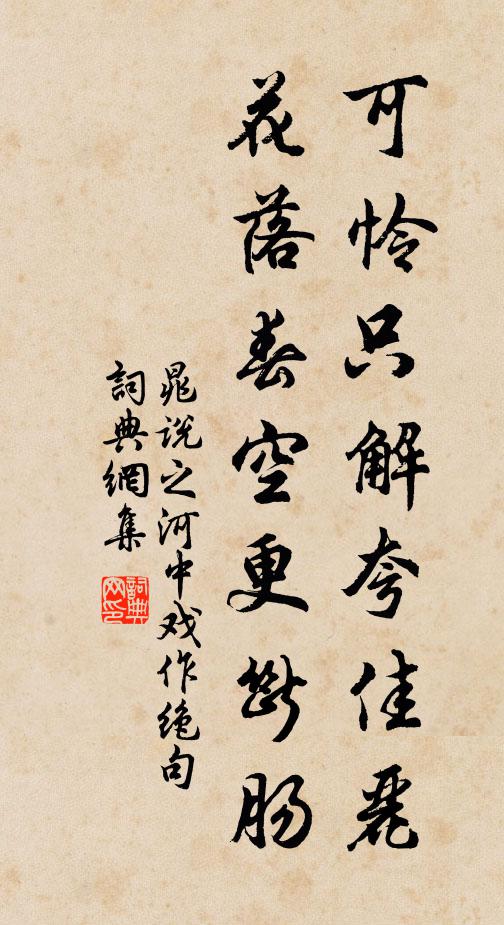 可怜只解夸佳麗
花落春空更断肠
晁说之河中戏作绝句
詞典網集
詞典网印